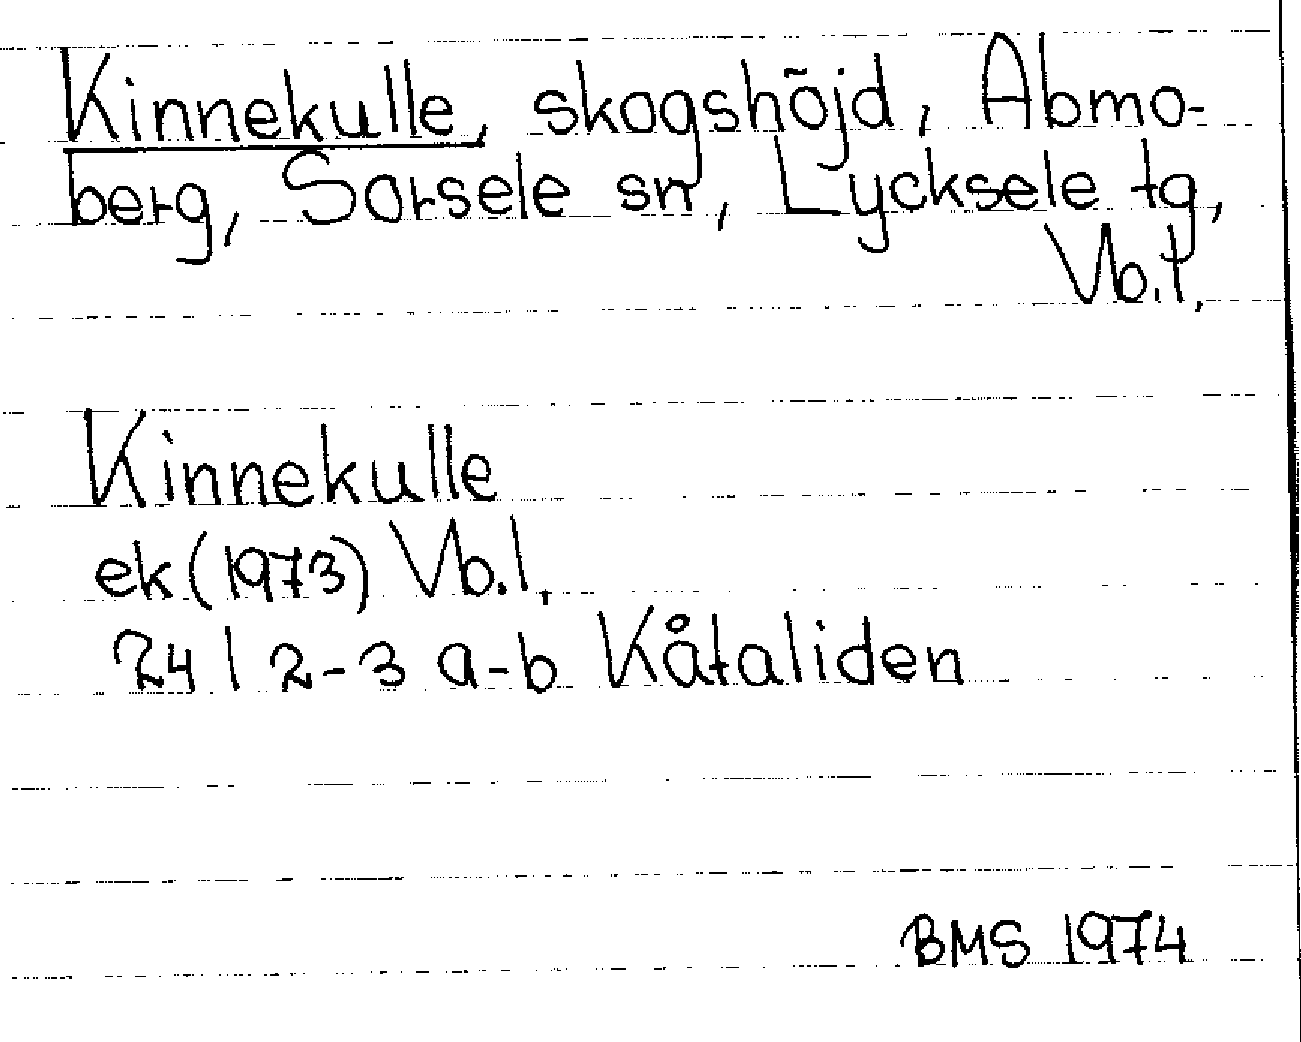 Kinnekulle, skogshöjd, Abmo-
berg, Sorsele sn, Lycksele tg,
Vb.l.
Kinnekulle
ek (1973) Vb.l.
24 I 2-3 a-b Kåtaliden
BMS 1974